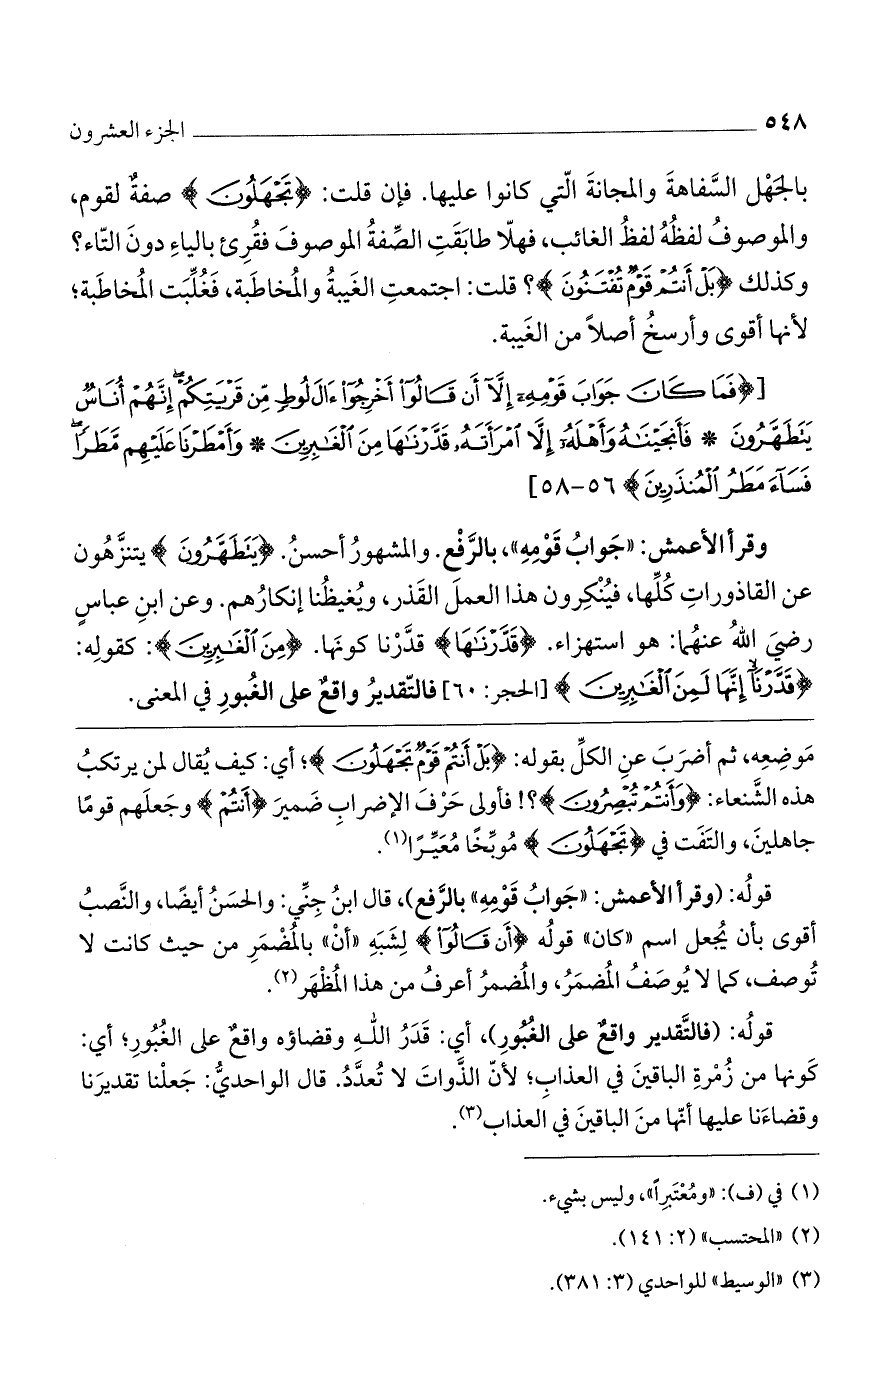 ٥٤٨ الجزء العشرون
بالجَهْل السَّفاهةَ والمجانةَ الّتي كانوا عليها. فإن قلت: ﴿تَجْهَلُونَ﴾ صفةٌ لقوم،
والموصوفُ لفظُهُ لفظُ الغائب، فهلّا طابَقَتِ الصِّفةُ الموصوفَ فقُرِئ بالياءِ دونَ التّاء؟
وكذلك ﴿بَلْ أَنتُمْ قَوْمٌ تُفْتَنُونَ﴾؟ قلت: اجتمعتِ الغَيبةُ والمُخاطَبة، فَغُلِّبَت المُخاطَبة؛
لأنها أقوى وأرسخُ أصلاً من الغَيبة.
[﴿فَمَا كَانَ جَوَابَ قَوْمِهِۦٓ إِلَّآ أَن قَالُوٓاْ أَخْرِجُوٓاْ ءَالَ لُوطٍ مِّن قَرْيَتِكُمْ ۖ إِنَّهُمْ أُنَاسٌ
يَتَطَهَّرُونَ * فَأَنجَيْنَٰهُ وَأَهْلَهُۥٓ إِلَّا ٱمْرَأَتَهُۥ قَدَّرْنَٰهَا مِنَ ٱلْغَٰبِرِينَ * وَأَمْطَرْنَا عَلَيْهِم مَّطَرًا ۖ
فَسَآءَ مَطَرُ ٱلْمُنذَرِينَ﴾ ٥٦-٥٨]
وقرأ الأعمش: «جَوابُ قَوْمِهِ»، بالرَّفْع. والمشهورُ أحسنُ. ﴿يَتَطَهَّرُونَ﴾ يتنزَّهُون
عن القاذوراتِ كُلِّها، فيُنْكِرون هذا العملَ القَذر، ويُغيظُنا إنكارُهم. وعن ابنِ عباسٍ
رضيَ اللهُ عنهُما: هو استهزاء. ﴿قَدَّرْنَٰهَا﴾ قدَّرْنا كونَها. ﴿مِنَ ٱلْغَٰبِرِينَ﴾: كقولِه:
﴿قَدَّرْنَآ ۙ إِنَّهَا لَمِنَ ٱلْغَٰبِرِينَ﴾ [الحجر: ٦٠] فالتّقديرُ واقعٌ على الغُبورِ في المعنى.
مَوضِعِه، ثم أضرَبَ عنِ الكلِّ بقوله: ﴿بَلْ أَنتُمْ قَوْمٌ تَجْهَلُونَ﴾؛ أي: كيف يُقال لمن يرتكبُ
هذه الشَّنعاء: ﴿وَأَنتُمْ تُبْصِرُونَ﴾؟! فأولى حَرْفَ الإضرابِ ضَميرَ ﴿أَنتُمْ﴾ وجَعلَهم قومًا
جاهلينَ، والتَفَت في ﴿تَجْهَلُونَ﴾ مُوبِّخًا مُعَيِّرًا(١).
قولُه: (وقرأ الأعمش: «جَوابُ قَوْمِهِ» بالرَّفع)، قال ابنُ جِنِّي: والحسَنُ أيضًا، والنَّصبُ
أقوى بأن يُجعل اسم «كان» قولُه ﴿أَن قَالُوٓاْ﴾ لِشَبَهِ «أنْ» بالمُضْمَرِ من حيث كانت لا
تُوصف، كما لا يُوصَفُ المُضمَرُ، والمُضمرُ أعرفُ من هذا المُظْهَر(٢).
قولُه: (فالتَّقدير واقعٌ على الغُبُورِ)، أي: قَدَرُ اللهِ وقضاؤه واقعٌ على الغُبُورِ؛ أي:
كَونها من زُمْرةِ الباقينَ في العذابِ؛ لأنّ الذَّواتَ لا تُعدَّدُ. قال الواحديُّ: جَعلْنا تقديرَنا
وقضاءَنا عليها أنّها منَ الباقينَ في العذاب(٣).
(١) في (ف): «ومُعْتَبِراً»، وليس بشيء.
(٢) «المحتسب» (٢: ١٤١).
(٣) «الوسيط» للواحدي (٣: ٣٨١).